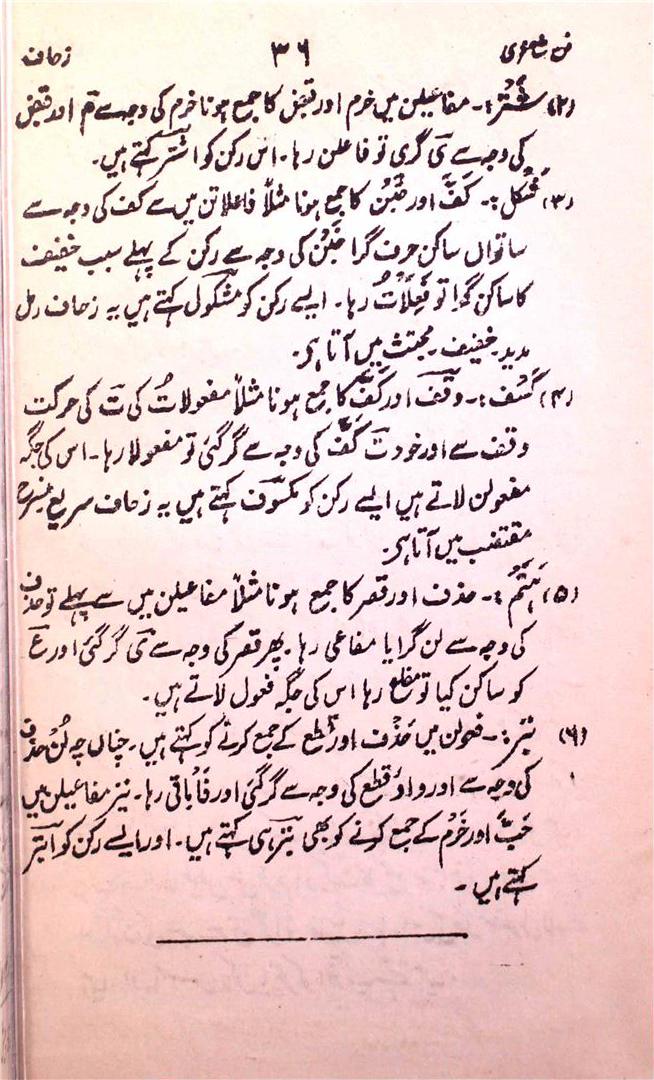 فن شاعری ۳۶ زحاف
(۲) شَتَر:۔ مفاعیلن میں خرم اور قبض کا جمع ہونا خرم کی وجہ سے م اور قبض
کی وجہ سے ی گری تو فاعلن رہا۔ اس رکن کو اشتر کہتے ہیں۔
(۳) شکل:۔ کَفّ اور خَبْن کا جمع ہونا مثلاً فاعلاتن میں سے کف کی وجہ سے
ساتواں ساکن حرف گرا خبن کی وجہ سے رکن کے پہلے سبب خفیف
کا ساکن گرا تو فَعِلَاتُ رہا۔ ایسے رکن کو مشکول کہتے ہیں یہ زحاف رمل
مدید۔ خفیف۔ مجتث میں آتا ہی۔
(۴) کَسْف:۔ وقف اور کَفّ کا جمع ہونا مثلاً مفعولاتُ کی تَ کی حرکت
وقف سے اور خود تَ کَفّ کی وجہ سے گر گئی تو مفعولا رہا۔ اس کی جگہ
مفعولن لاتے ہیں ایسے رکن کو مکسوف کہتے ہیں یہ زحاف سریع منسرح
مقتضب میں آتا ہی۔
(۵) ہَتْم:۔ حذف اور قصر کا جمع ہونا مثلاً مفاعیلن میں سے پہلے تو حذف
کی وجہ سے لن گرایا مفاعی رہا۔ پھر قصر کی وجہ سے ی گر گئی اور ع
کو ساکن کیا تو مفاع رہا اس کی جگہ فعول لاتے ہیں۔
(۶) بتر:۔ فعولن میں حَذْف اور قطع کے جمع کرنے کو کہتے ہیں۔ چناں چہ لُنْ حذف
کی وجہ سے اور واو قطع کی وجہ سے گر گئی اور فَا باقی رہا۔ نیز مفاعیلن میں
جَبّ اور خَرْم کے جمع کرنے کو بھی بتر ہی کہتے ہیں۔ اور ایسے رکن کو ابتر
کہتے ہیں۔